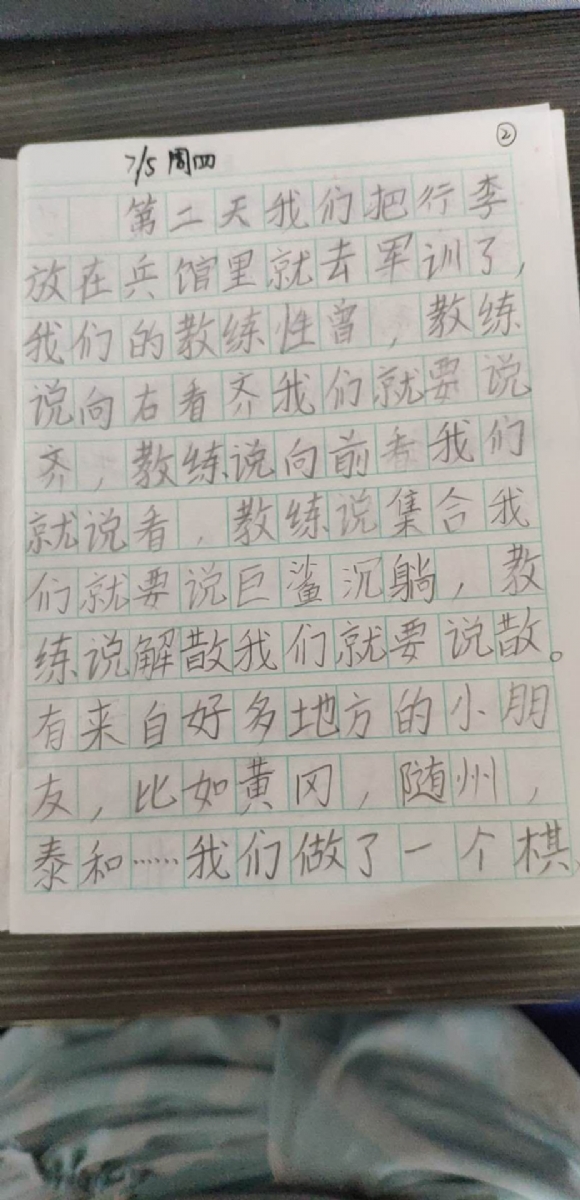 ②
7/5 周四
第二天我们把行李
放在兵馆里就去军训了，
我们的教练性曾，教练
说向右看齐我们就要说
齐，教练说向前看我们
就说看，教练说集合我
们就要说巨鲨沉躺，教
练说解散我们就要说散。
有来自好多地方的小朋
友，比如黄冈，随州，
泰和……我们做了一个棋